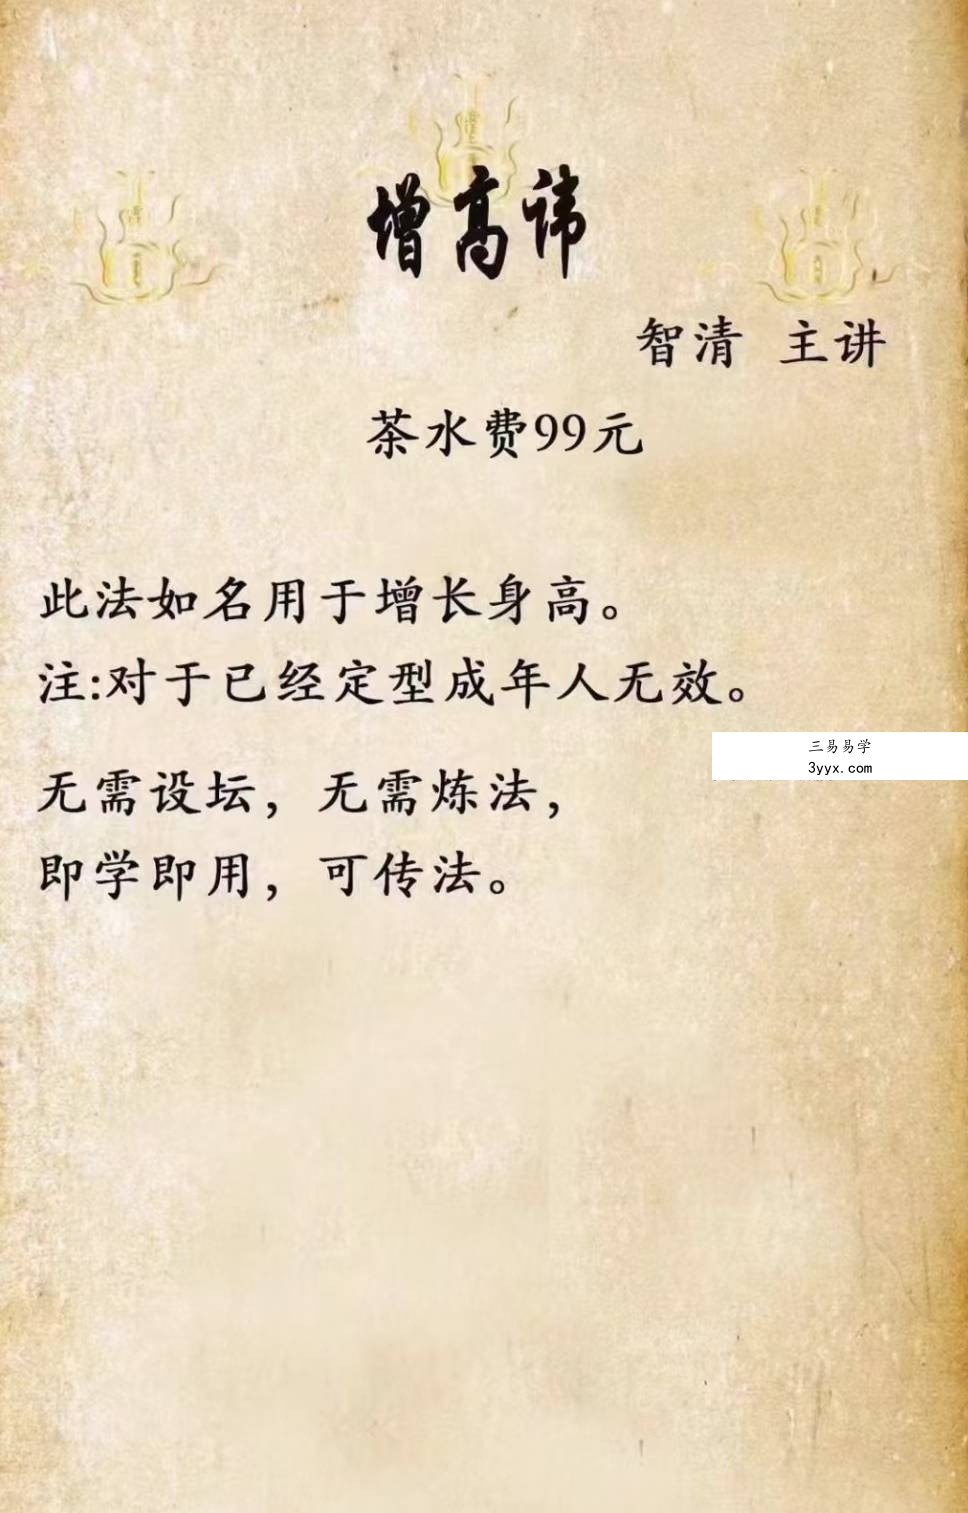 增高讳
智清 主讲
茶水费99元
此法如名用于增长身高。
注:对于已经定型成年人无效。
三易易学
3yyx.com
无需设坛，无需炼法，
即学即用，可传法。